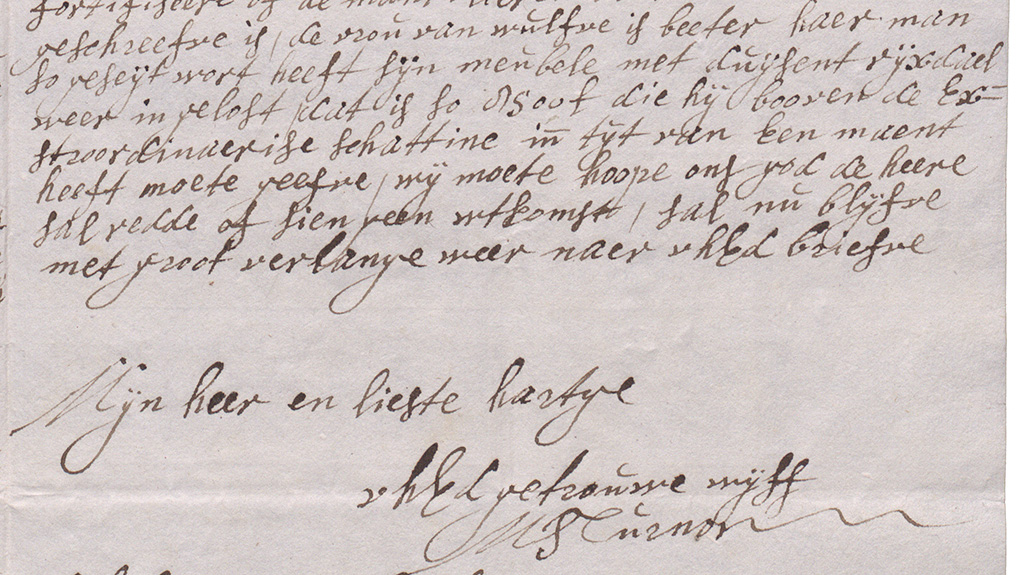 fortifiseere of de
geschreefve is / de vrou van wulfve is beeter haer man
so geseyt wort heeft sijn meubele met duysent ryxdael
weer in gelost / dat is so die hij booven de Ex=
stroordinaerise schattine in tyt van Een maent
heeft moete geefve / wij moete hoope ons god de heere
sal redde of sien geen wtkomst / sal nu blijfve
met groot verlange weer naer vhEd briefve
Mijn heer en liefste hartge
vhEd getrouwe wijff
M S Turnor